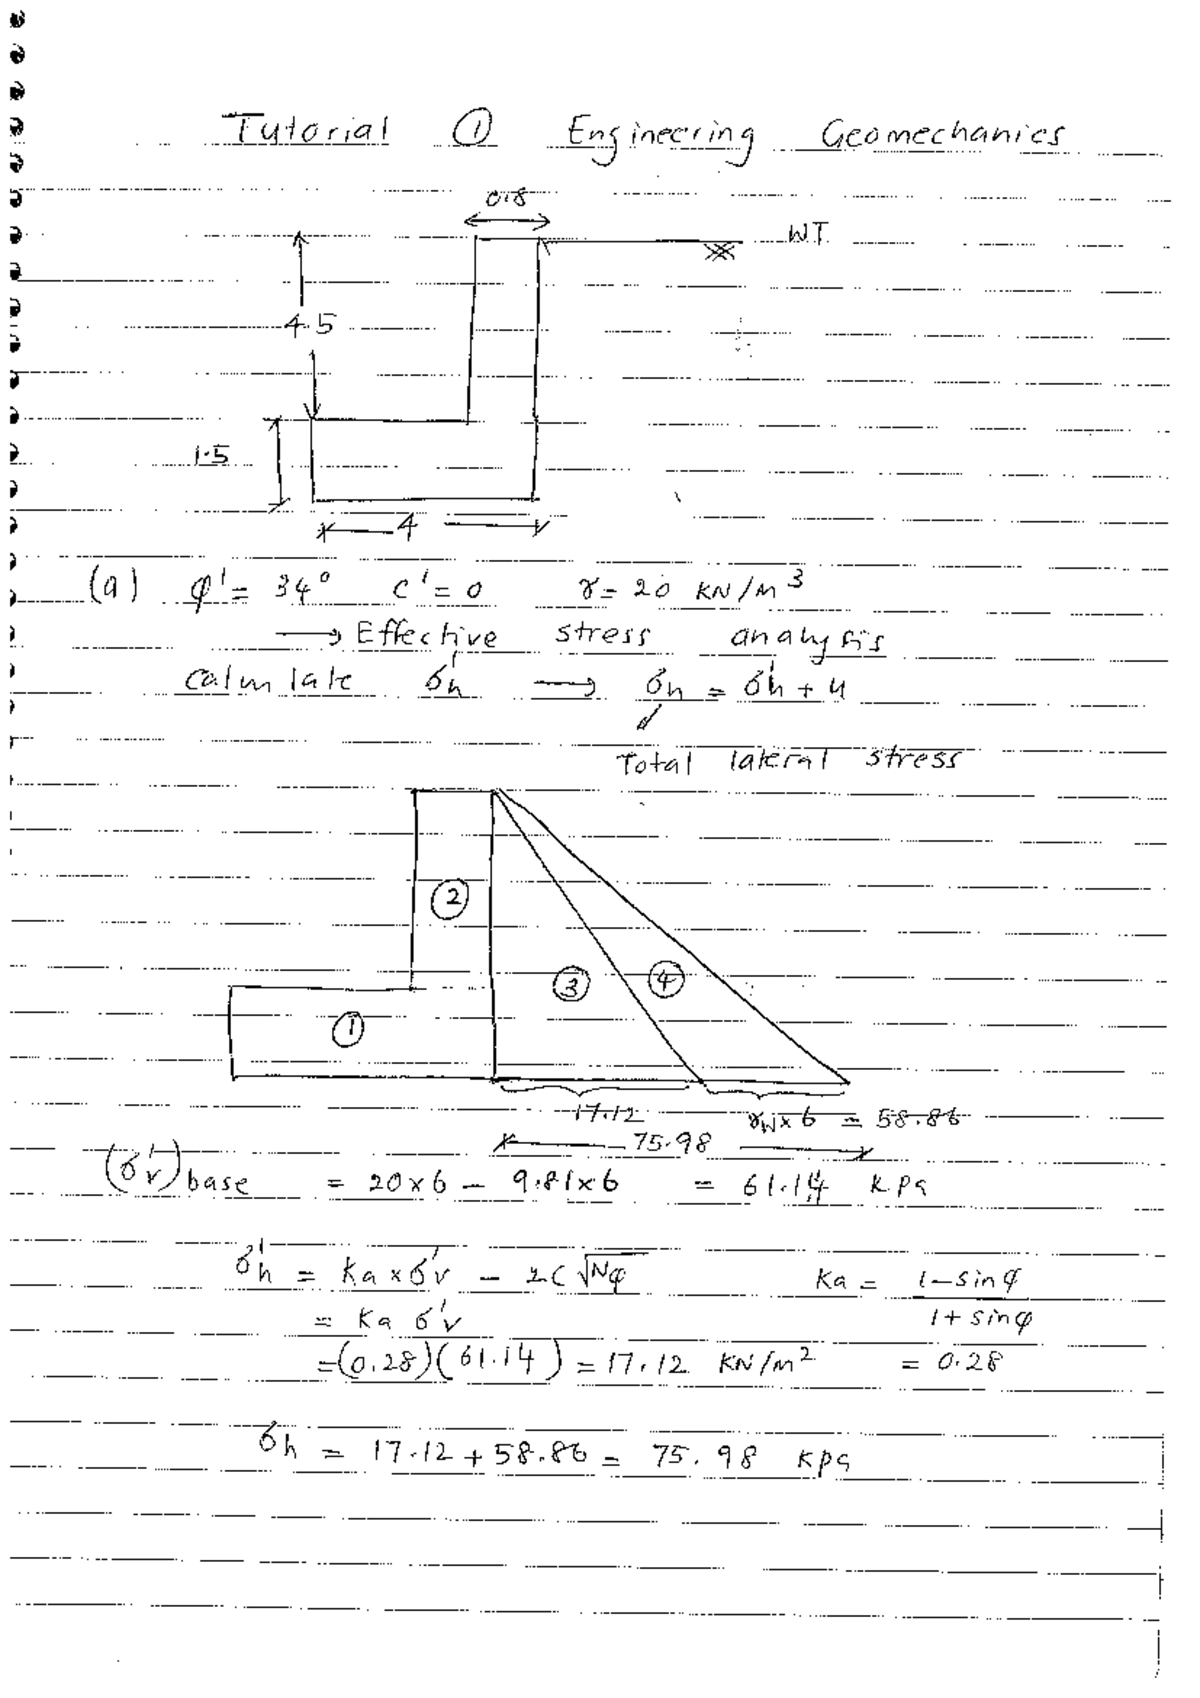 Tutorial ① Engineering Geomechanics
0.8
WT
4.5
1.5
4
(a) φ' = 34° c' = 0 γ = 20 KN/m³
→ Effective stress analysis
calculate σ'h → σh = σ'h + u
Total lateral stress
②
③ ④
①
17.12 γw×6 = 58.86
75.98
(σ'v)base = 20×6 - 9.81×6 = 61.14 kpa
σ'h = Ka×σ'v - 2C√Nφ Ka = 1-sinφ
= Ka σ'v 1+sinφ
=(0.28)(61.14) = 17.12 KN/m² = 0.28
σh = 17.12 + 58.86 = 75.98 kpa